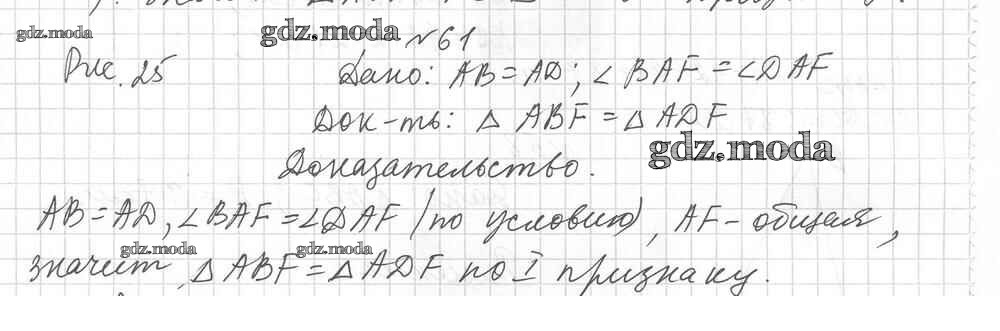 gdz.moda
gdz.moda
№ 61
Рис. 25
Дано: AB = AD; ∠ BAF = ∠DAF
Док-ть: △ ABF = △ ADF
gdz.moda
Доказательство.
AB = AD, ∠BAF = ∠DAF (по условию), AF - общая,
gdz.moda
gdz.moda
значит △ ABF = △ ADF по I признаку.